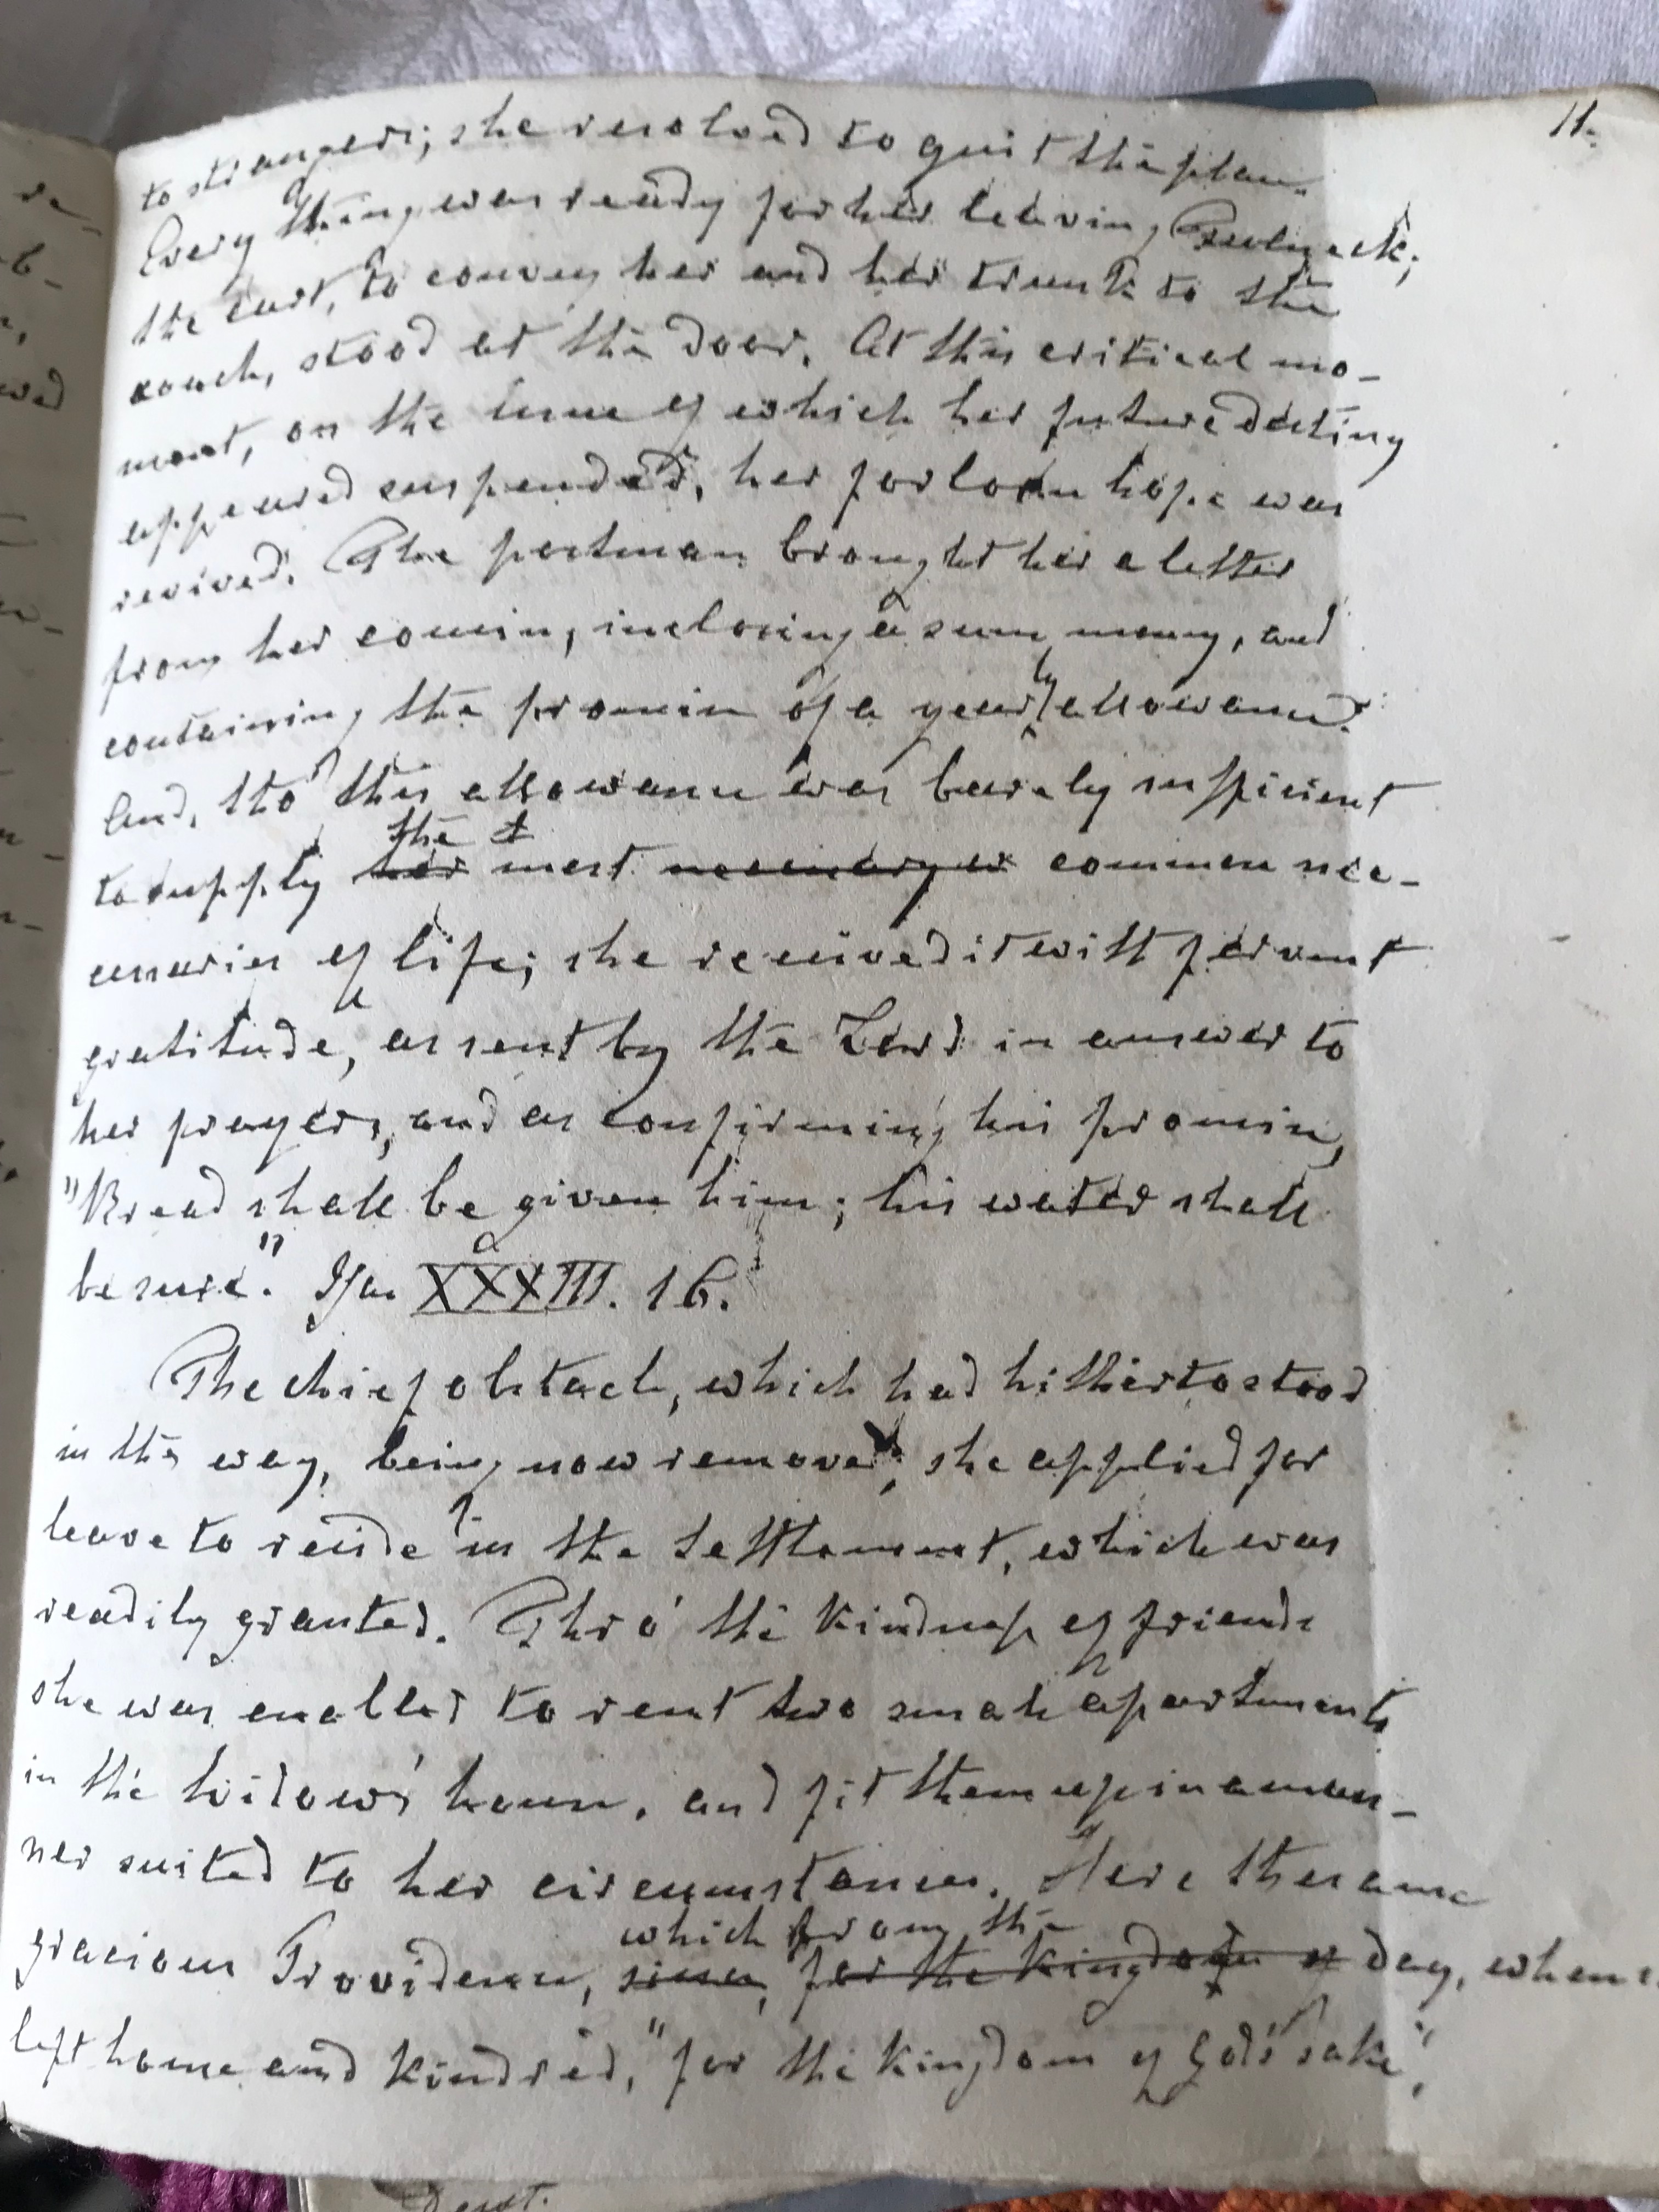 11.
to strangers; she resolved to quit the place.
Every thing was ready for her leaving Gulneck;
the cart, to convey her and her trunk to the
coach, stood at the door. At this critical mo-
ment, on the issue of which her future destiny
appeared suspended, her forlorn hope was
revived. The postman brought her a letter
from her cousin, inclosing a sum money, and
containing the promise of a yearly allowance.
And, tho' this allowance was barely sufficient
to supply her the most necessary or common nec-
essaries of life; she received it with fervent
gratitude, as sent by the Lord in answer to
her prayers, and as confirming his promise,
"Bread shall be given him; his water shall
be sure". Isa. XXXIII. 16.
The chief obstacle, which had hitherto stood
in the way, being now removed, she applied for
leave to reside in the Settlement, which was
readily granted. Thro' the kindness of friends
she was enabled to rent two small apartments
in the widows' house, and fit them up in a man-
ner suited to her circumstances. Here the same
gracious Providence, since, which from the for the kingdom of day, when
left home and kindred, "for the kingdom of God's sake",
Dewt.